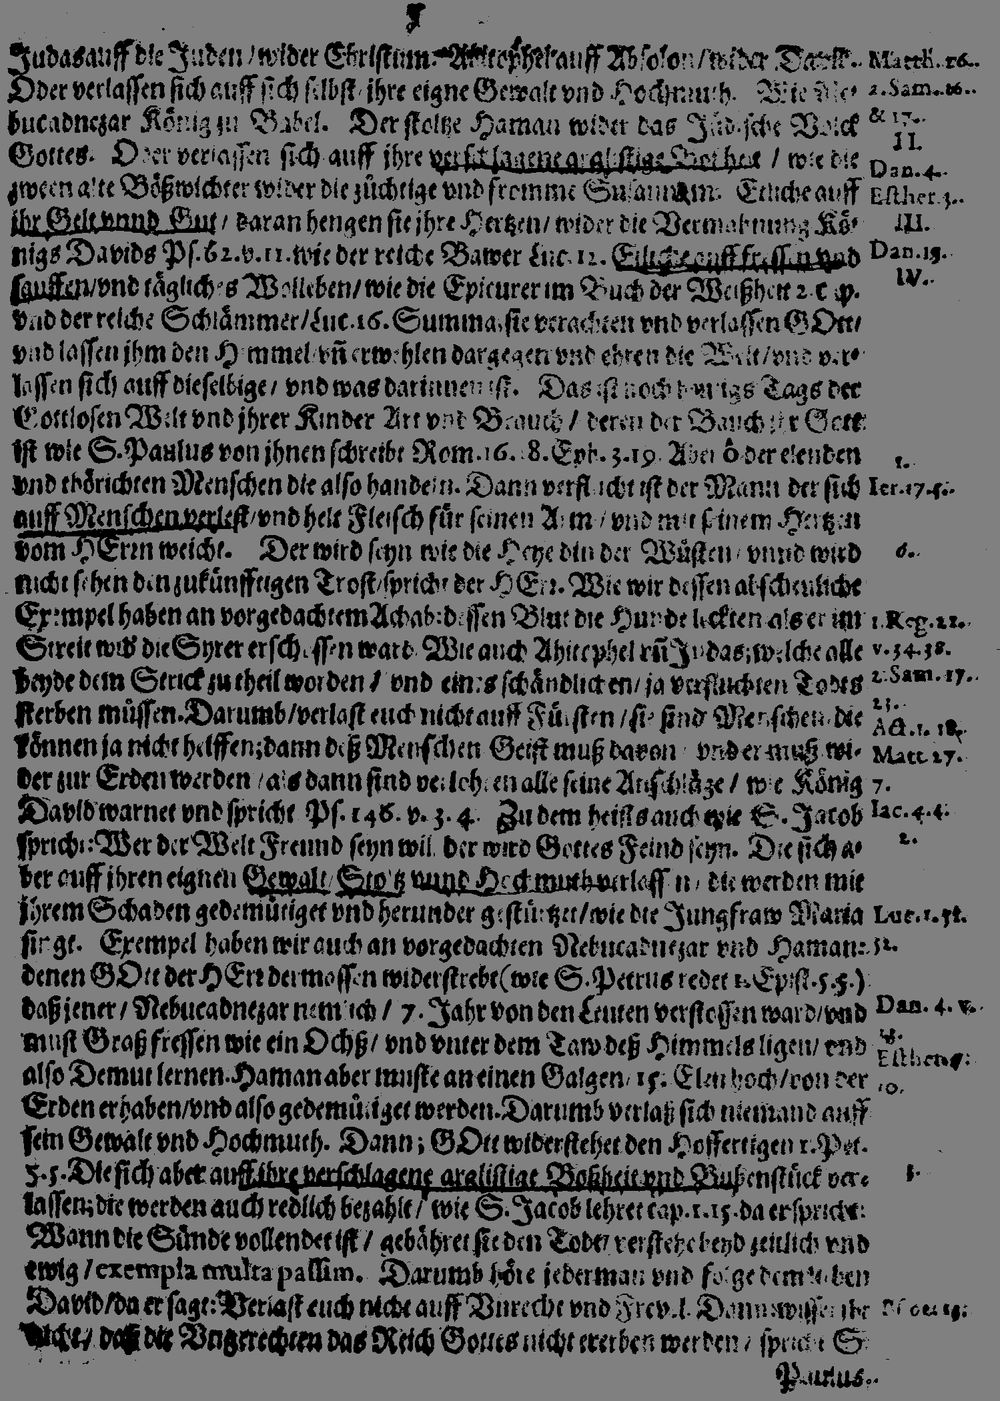 Judas auff die Juden / wider Christum. Ahitophel auff Absolon / wider David.
Oder verlassen sich auff sich selbst / ihre eigne Gewalt vnd Hochmuth. Wie Ne-
bucadnezar König zu Babel. Der stoltze Haman wider das Jüdische Volck
Gottes. Oder verlassen sich auff ihre verschlagene arglistige Boßheit / wie die
zween alte Bößwichter wider die züchtige vnd fromme Susannam. Etliche auff
ihr Gelt vnnd Gut / daran hengen sie jhre Hertzen / wider die Vermahnung Kö-
nigs Davids Ps. 62. v. 11. wie der reiche Bawer Luc. 12. Etliche auff fressen vnd
sauffen / vnd tägliches Wolleben / wie die Epicurer im Buch der Weißheit 2. cap.
vnd der reiche Schlämmer / Luc. 16. Summa, sie verachten vnd verlassen GOtt /
vnd lassen jhm den Himmel / vñ erwehlen dargegen vnd ehren die Welt / vnd ver-
lassen sich auff dieselbige / vnd was darinnen ist. Das ist noch heutigs Tags der
Gottlosen Welt vnd jhrer Kinder Art vnd Brauch / deren der Bauch ihr Gott
ist wie S. Paulus von ihnen schreibt Rom. 16. 18. Eph. 3. 19. Aber ô der elenden
vnd thörichten Menschen die also handeln. Dann verflucht ist der Mann der sich
auff Menschen verlest / vnd helt Fleisch für seinen Arm / vnd mit seinem Hertzen
vom HErrn weicht. Der wird seyn wie die Heyde in der Wüsten / vnnd wird
nicht sehen den zukünfftigen Trost / spricht der HErr. Wie wir dessen abscheuliche
Exempel haben an vorgedachtem Achab: dessen Blut die Hunde leckten als er im
Streit wid die Syrer erschossen ward. Wie auch Ahitophel vñ Judas; welche alle
beyde dem Strick zu theil worden / vnd eines schändlichen / ja verfluchten Todts
sterben müssen. Darumb / verlast euch nicht auff Fürsten / sie sind Menschen / die
können ja nicht helffen; dann deß Menschen Geist muß davon / vnd er muß wi-
der zur Erden werden / als dann sind verlohren alle seine Anschläge / wie König
David warnet vnd spricht Ps. 146. v. 3. 4. Zu dem heists auch wie S. Jacob
spricht: Wer der Welt Freund seyn wil / der wird Gottes Feind seyn. Die sich a-
ber auff jhren eignen Gewalt / Stoltz vnnd Hochmuth verlassen / die werden mit
jhrem Schaden gedemütiget vnd herunder gestürtzet / wie die Jungfraw Maria
singt. Exempel haben wir auch an vorgedachten Nebucadnezar vnd Haman:
denen GOtt der HErr dermassen widerstrebt (wie S. Petrus redet 1. Epist. 5. 5.)
daß jener / Nebucadnezar nemlich / 7. Jahr von den Leuten verstossen ward / vnd
must Graß fressen wie ein Ochß / vnd vnter dem Taw deß Himmels ligen / vnd
also Demut lernen. Haman aber muste an einen Galgen / 15. Elen hoch / von der
Erden erhaben / vnd also gedemütiget werden. Darumb verlaß sich niemand auff
sein Gewalt vnd Hochmuth. Dann; GOtt widerstehet den Hoffertigen 1. Pet.
5. 5. Die sich aber auff ihre verschlagene arglistige Boßheit vnd Bubenstück ver-
lassen; die werden auch redlich bezahlt / wie S. Jacob lehret cap. 1. 15. da er spricht:
Wann die Sünde vollendet ist / gebähret sie den Todt / verstehe beyd zeitlich vnd
ewig / exempla multa passim. Darumb höre jederman vnd folge dem lieben
David / da er sagt: Verlast euch nicht auff Vnrecht vnd Frevel. Dann wisset ihr
nicht / daß die Vngerechten das Reich Gottes nicht ererben werden / spricht S.
Paulus.
Matth. 26.
2. Sam. 16.
& 17.
II.
Dan. 4.
Esther. 3.
III.
Dan. 13.
IV.
1.
Ier. 17. 5.
6.
1. Reg. 22.
v. 34. 38.
2. Sam. 17.
23.
Act. 1. 18.
Matt. 27.
7.
Iac. 4. 4.
2.
Luc. 1. 51.
52.
Dan. 4. v.
Esther. 7.
10.
3.